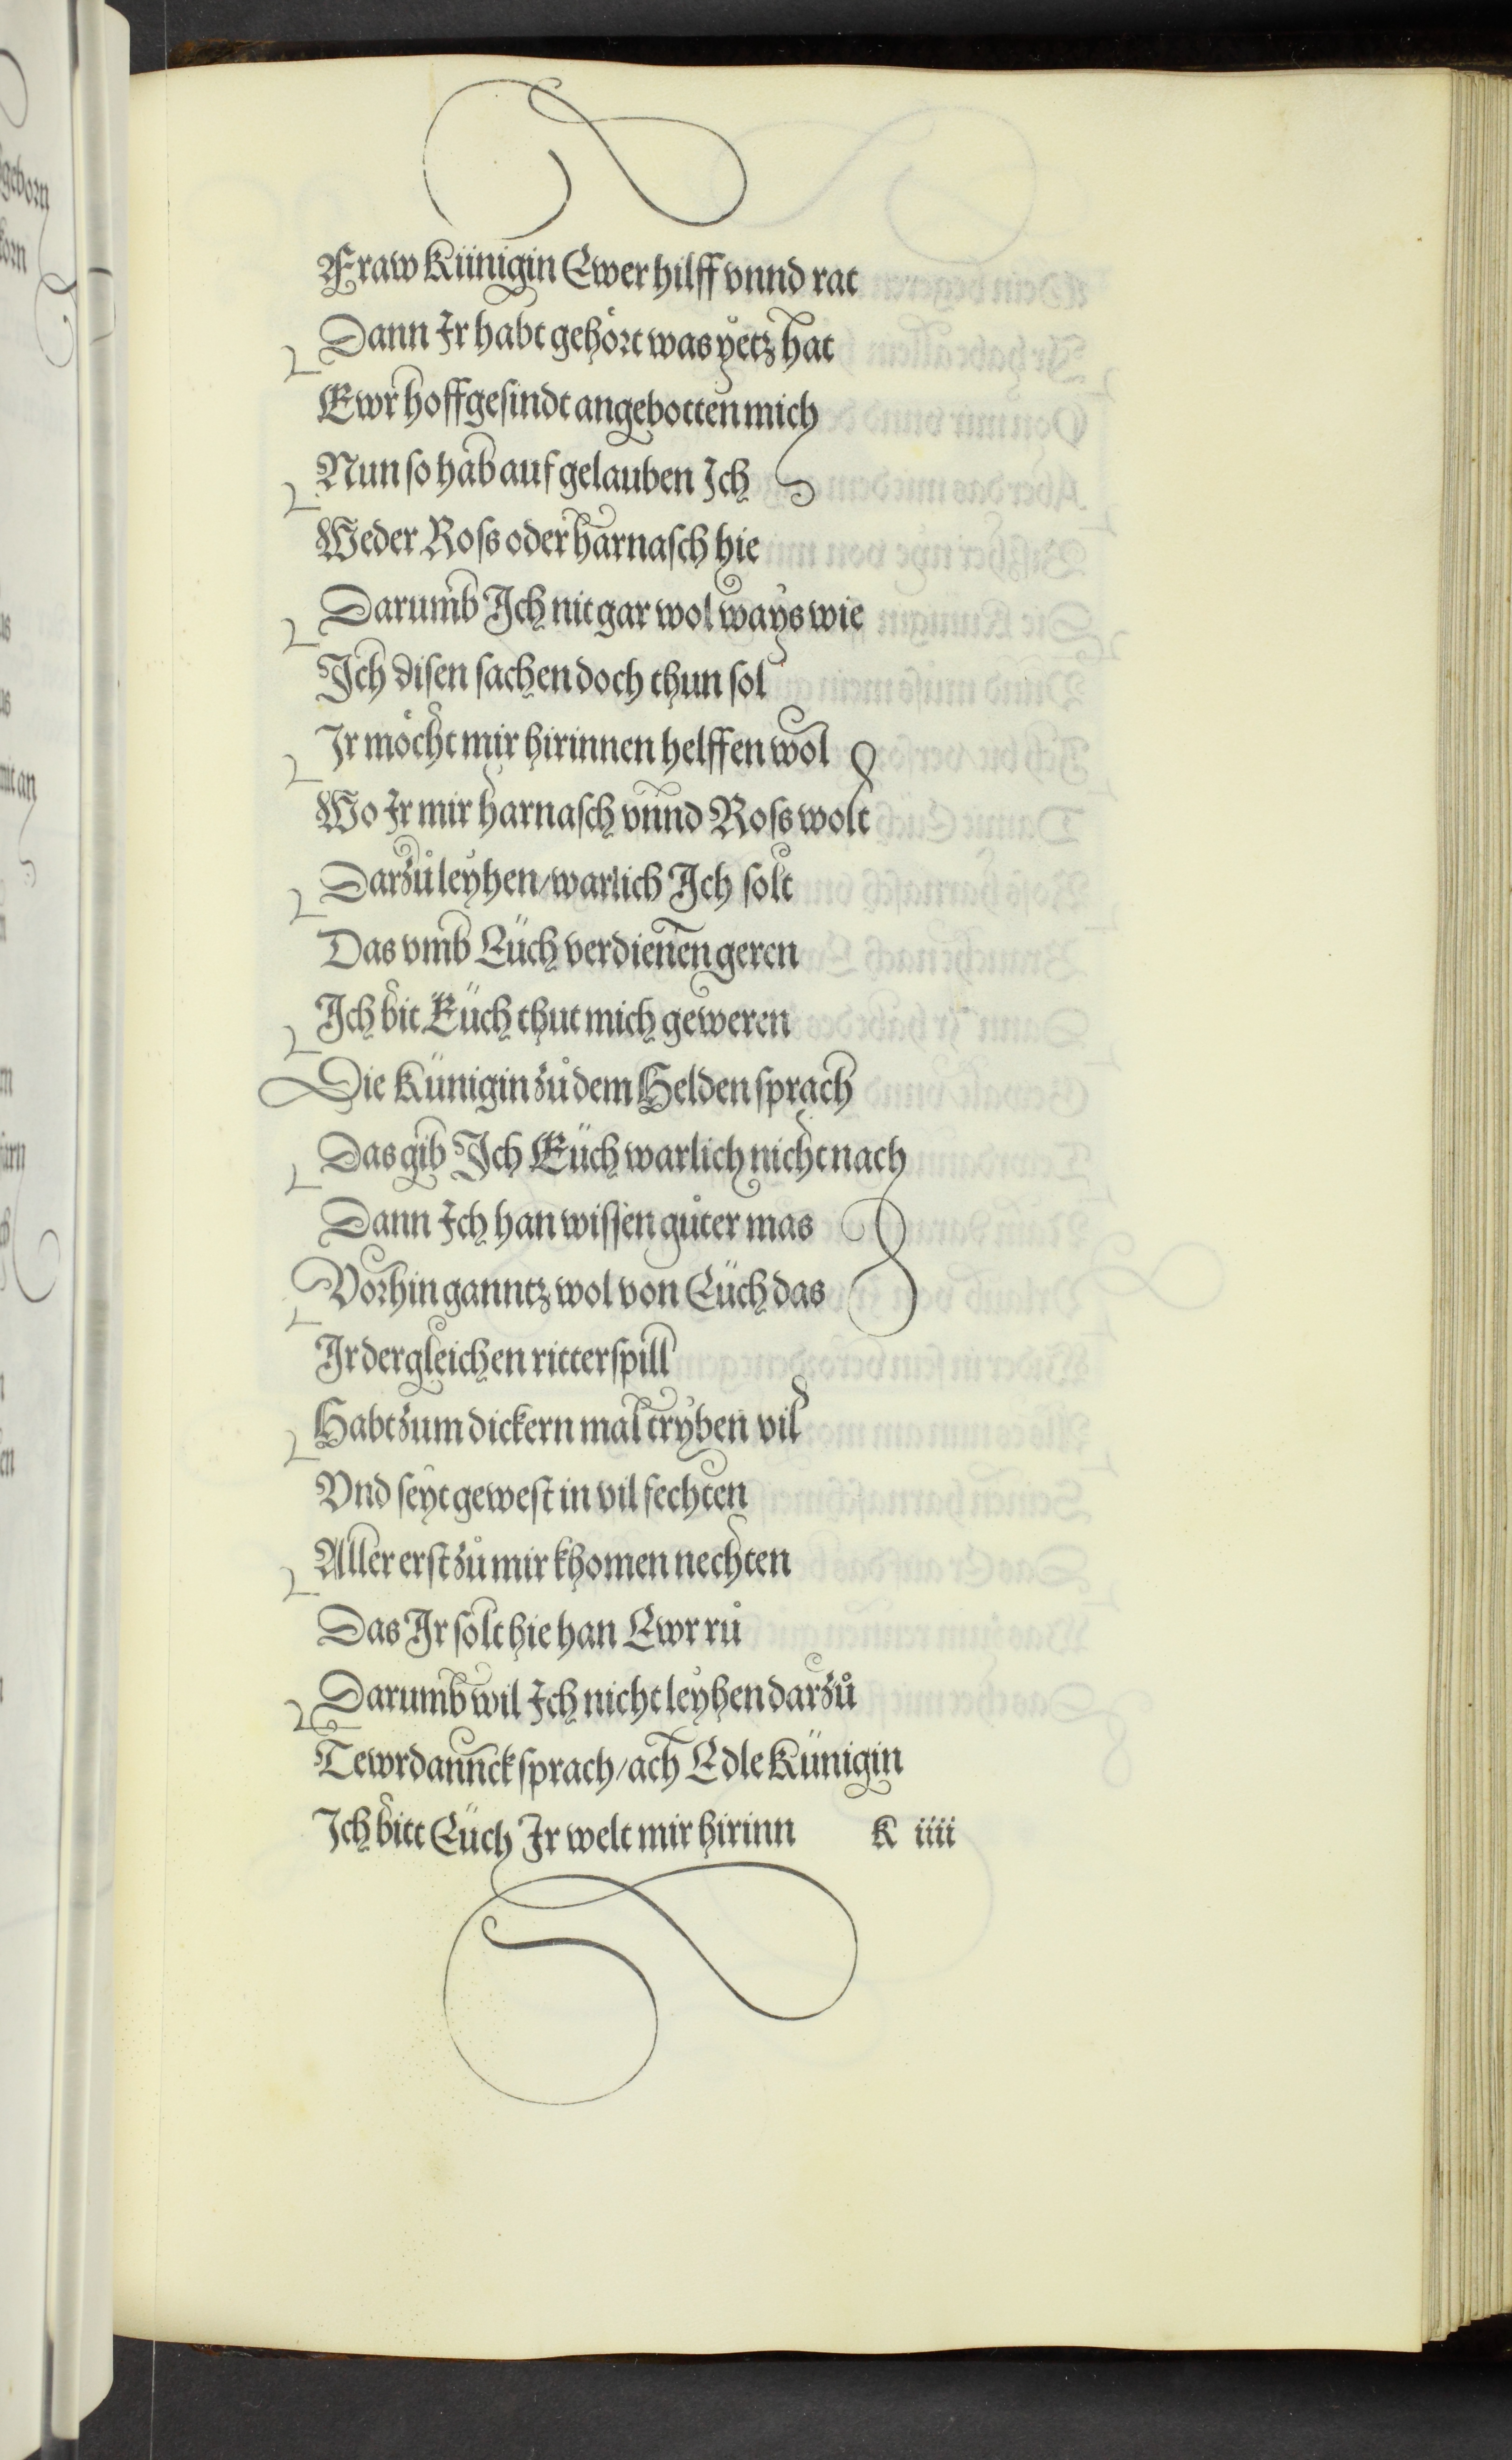 Fraw Künigin Ewer hilff vnnd rat
Dann Ir habt gehört was yetz hat
Ewr hoffgesindt angebotten mich
Nun so hab auf gelauben Ich
Weder Ross oder harnasch hie
Darumb Ich nit gar wol ways wie
Ich disen sachen doch thun sol
Ir möcht mir hirinnen helffen wol
Wo Ir mir harnasch vnnd Ross wolt
Darzů leyhen/warlich Ich solt
Das vmb Eüch verdienen geren
Ich bit Eüch thut mich geweren
Die Künigin zů dem Helden sprach
Das gib Ich Eüch warlich nicht nach
Dann Ich han wissen gůter mas
Vorhin ganntz wol von Eüch das
Ir dergleichen ritterspill
Habt zum dickern mal tryben vil
Vnd seyt gewest in vil fechten
Aller erst zů mir khomen nechten
Das Ir solt hie han Ewr rů
Darumb wil Ich nicht leyhen darzů
Tewrdannck sprach/ach Edle Künigin
Ich bitt Eüch Ir welt mir hirinn K iiii